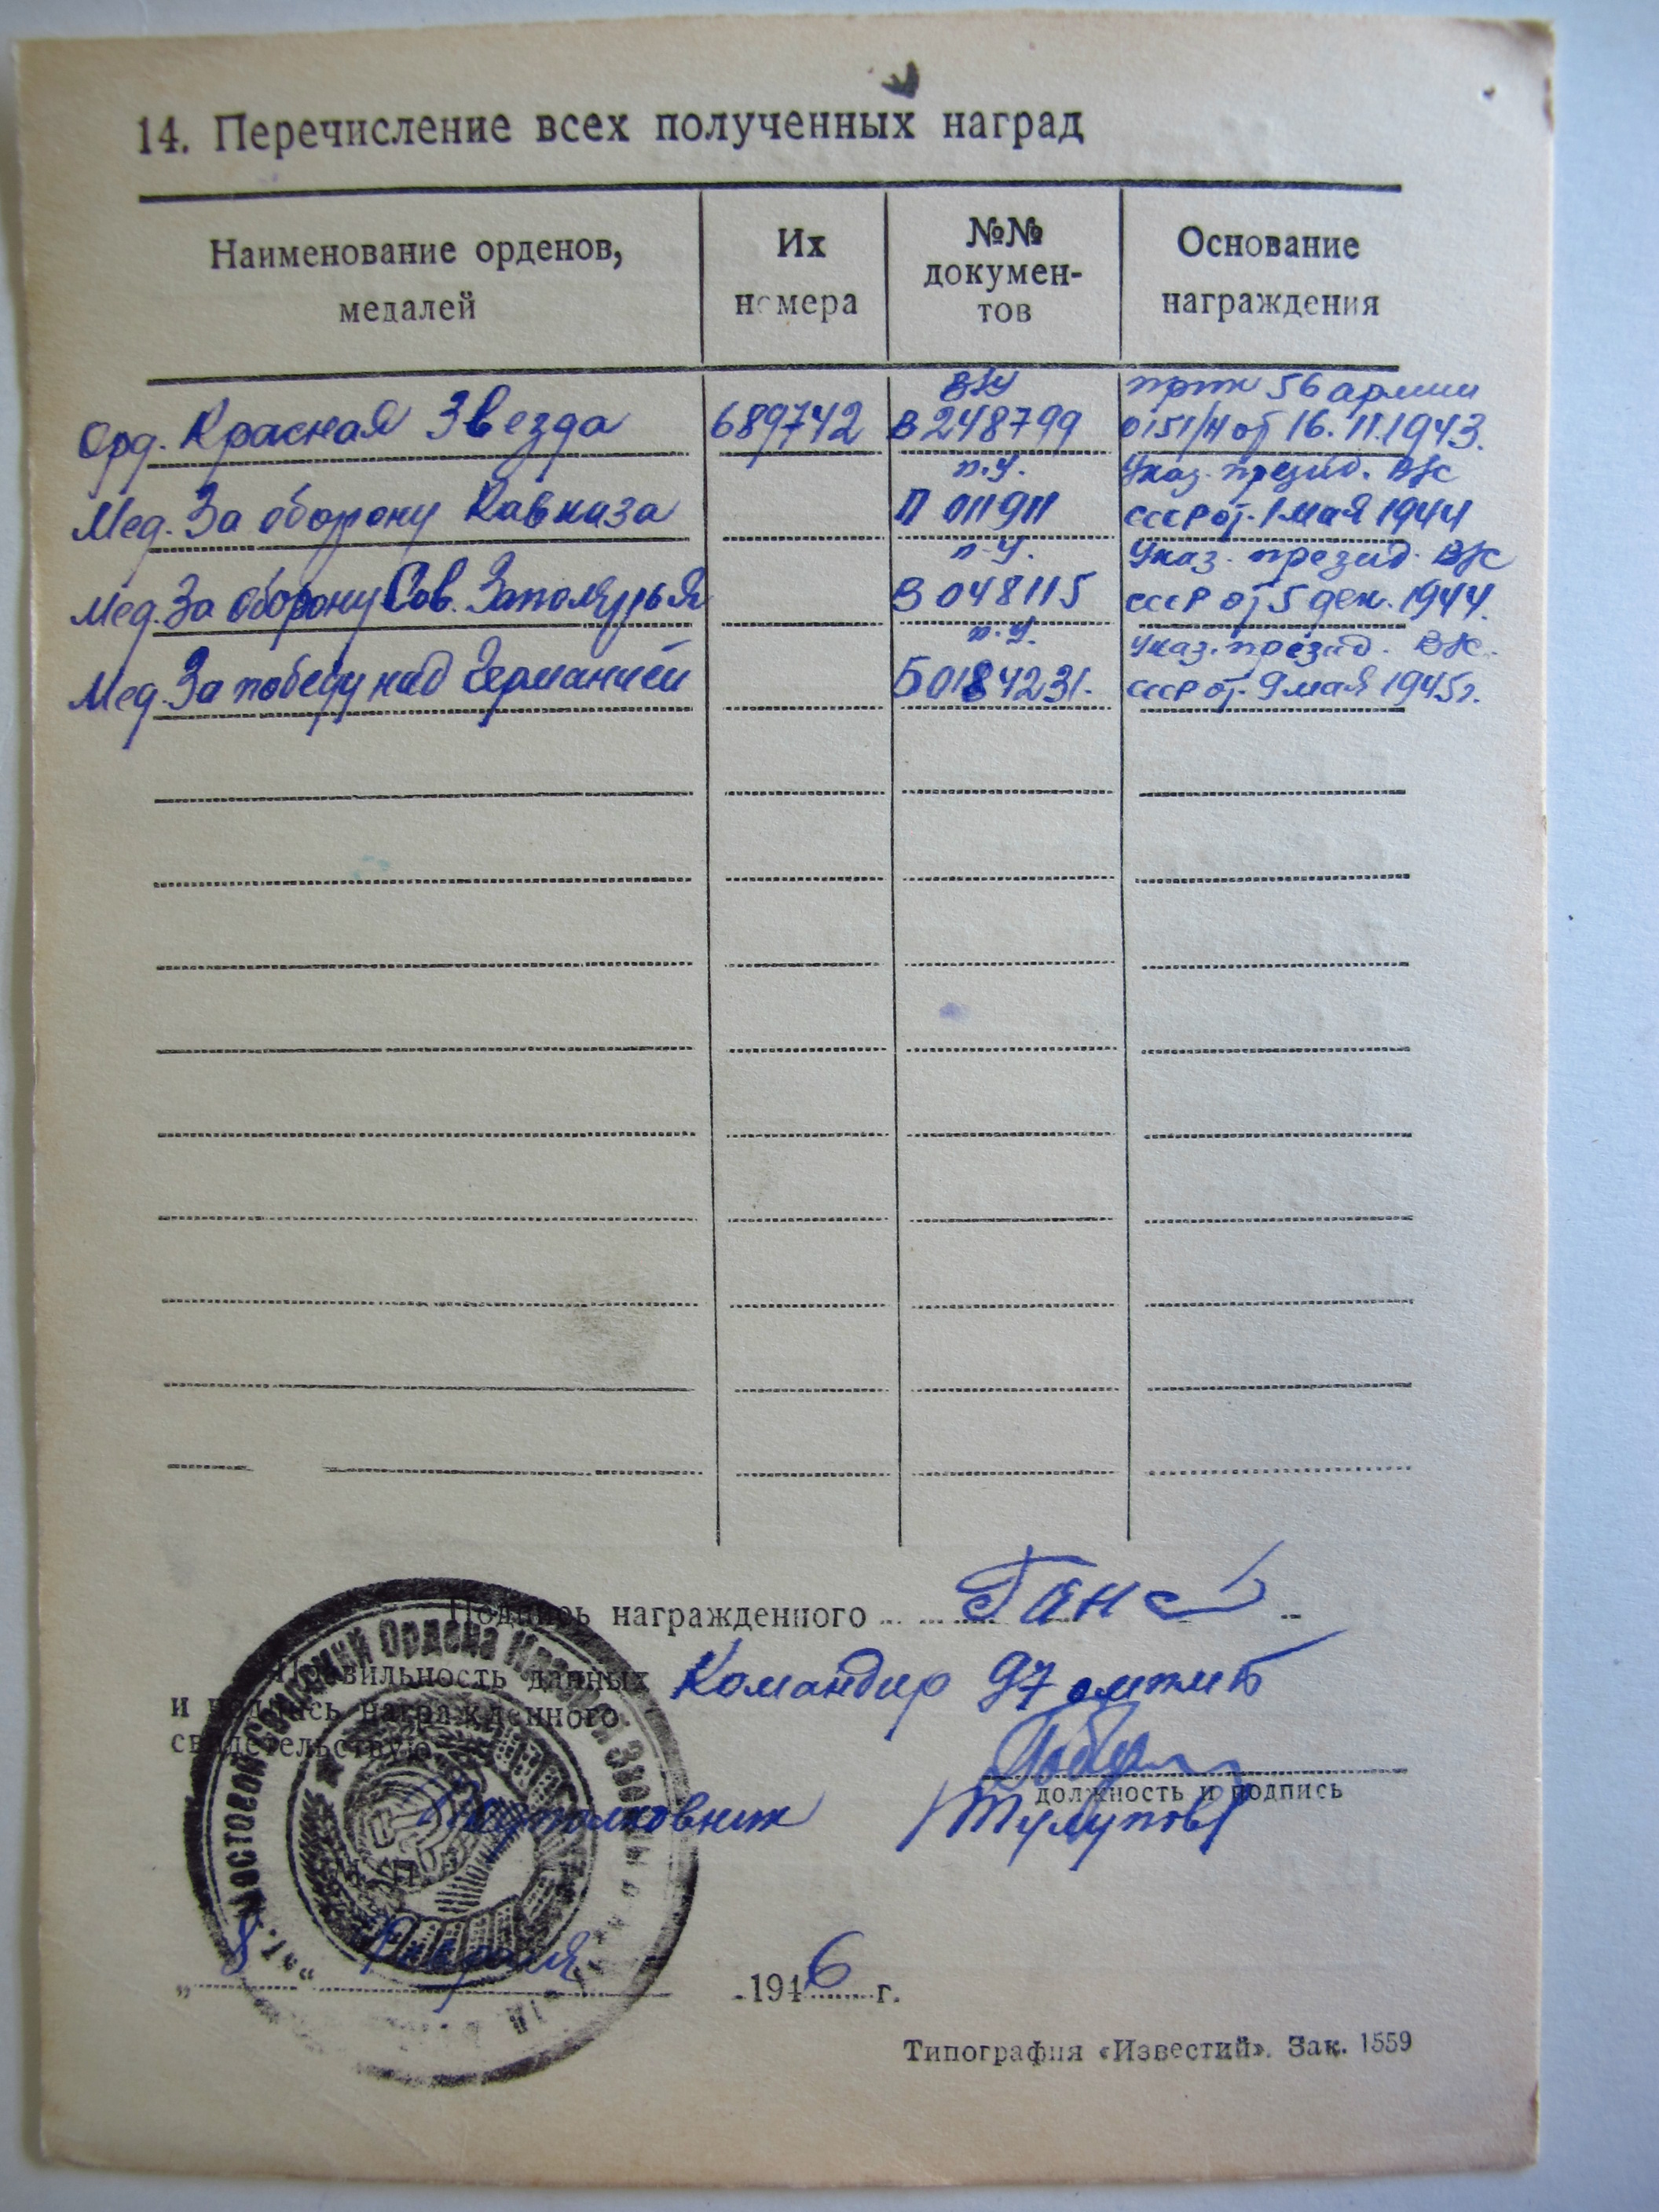 14. Перечисление всех полученных наград
Наименование орденов, медалей
Их номера
№№ докумен-тов
Основание награждения
ВКУ прик 56 армии
Орд. Красная Звезда 689742 В 248799 0151/Н от 16.11.1943.
п.у. Указ. презид. ВС
Мед. За оборону Кавказа П 011911 СССР от 1 мая 1944
п.у. Указ. презид. ВС
Мед. За оборону Сов. Заполярья В 048115 СССР от 5 дек. 1944.
п.у. Указ. презид. ВС.
Мед. За победу над Германией Б 0184231. СССР от 9 мая 1945г.
Подпись награжденного
Правильность данных Командир 97 омтиб
и подпись награжденного
свидетельствую
должность и подпись
Подполковник /Тулупов/
М. П.
„8“ Февраля 1946 г.
Типография «Известий». Зак. 1559